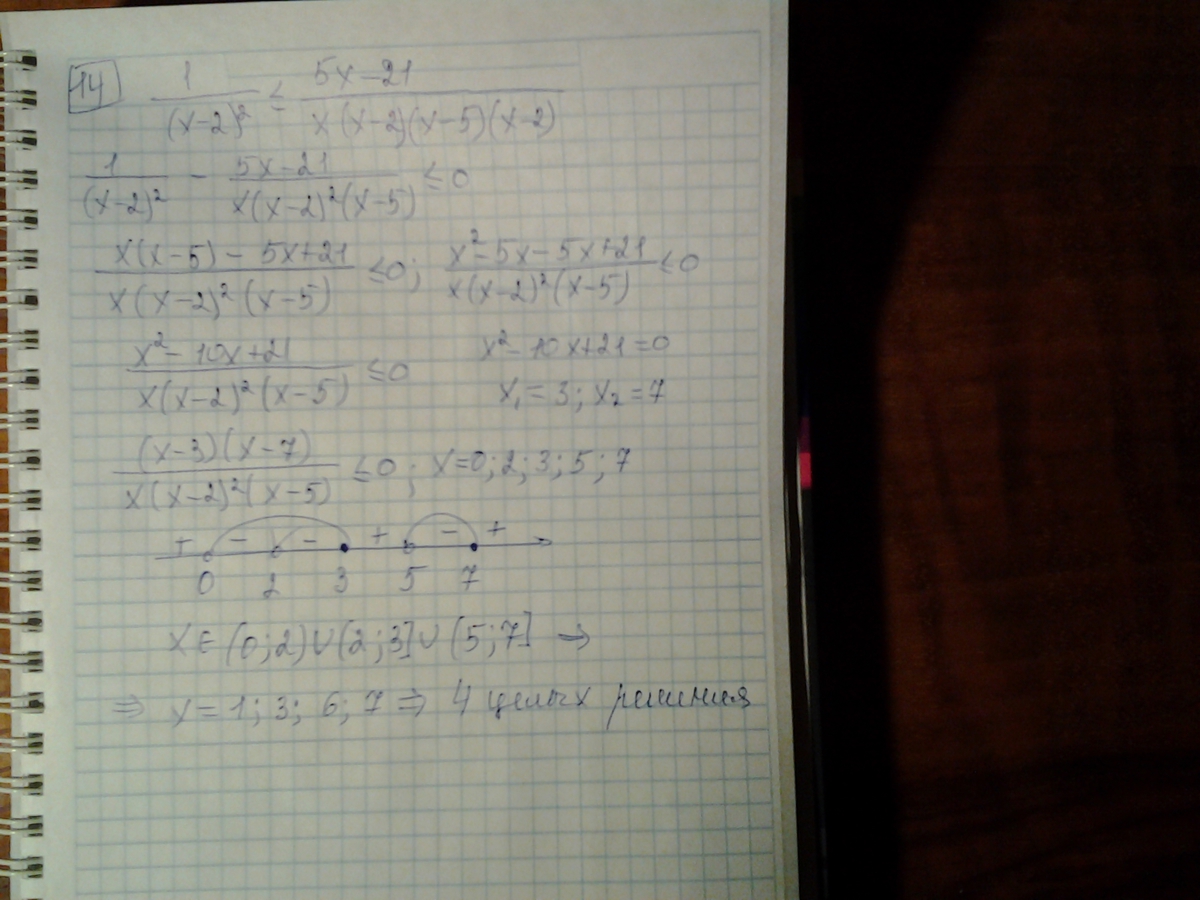 14 1/(x-2)² ≤ (5x-21)/(x(x-2)(x-5)(x-2))
1/(x-2)² - (5x-21)/(x(x-2)²(x-5)) ≤ 0
(x(x-5) - 5x+21)/(x(x-2)²(x-5)) ≤ 0; (x²-5x-5x+21)/(x(x-2)²(x-5)) ≤ 0
(x²-10x+21)/(x(x-2)²(x-5)) ≤ 0 x²-10x+21=0
x₁=3; x₂=7
((x-3)(x-7))/(x(x-2)²(x-5)) ≤ 0; x=0; 2; 3; 5; 7
+ - - + - +
0 2 3 5 7
x∈(0;2)∪(2;3]∪(5;7] ⇒
⇒ x=1; 3; 6; 7 ⇒ 4 целых решения